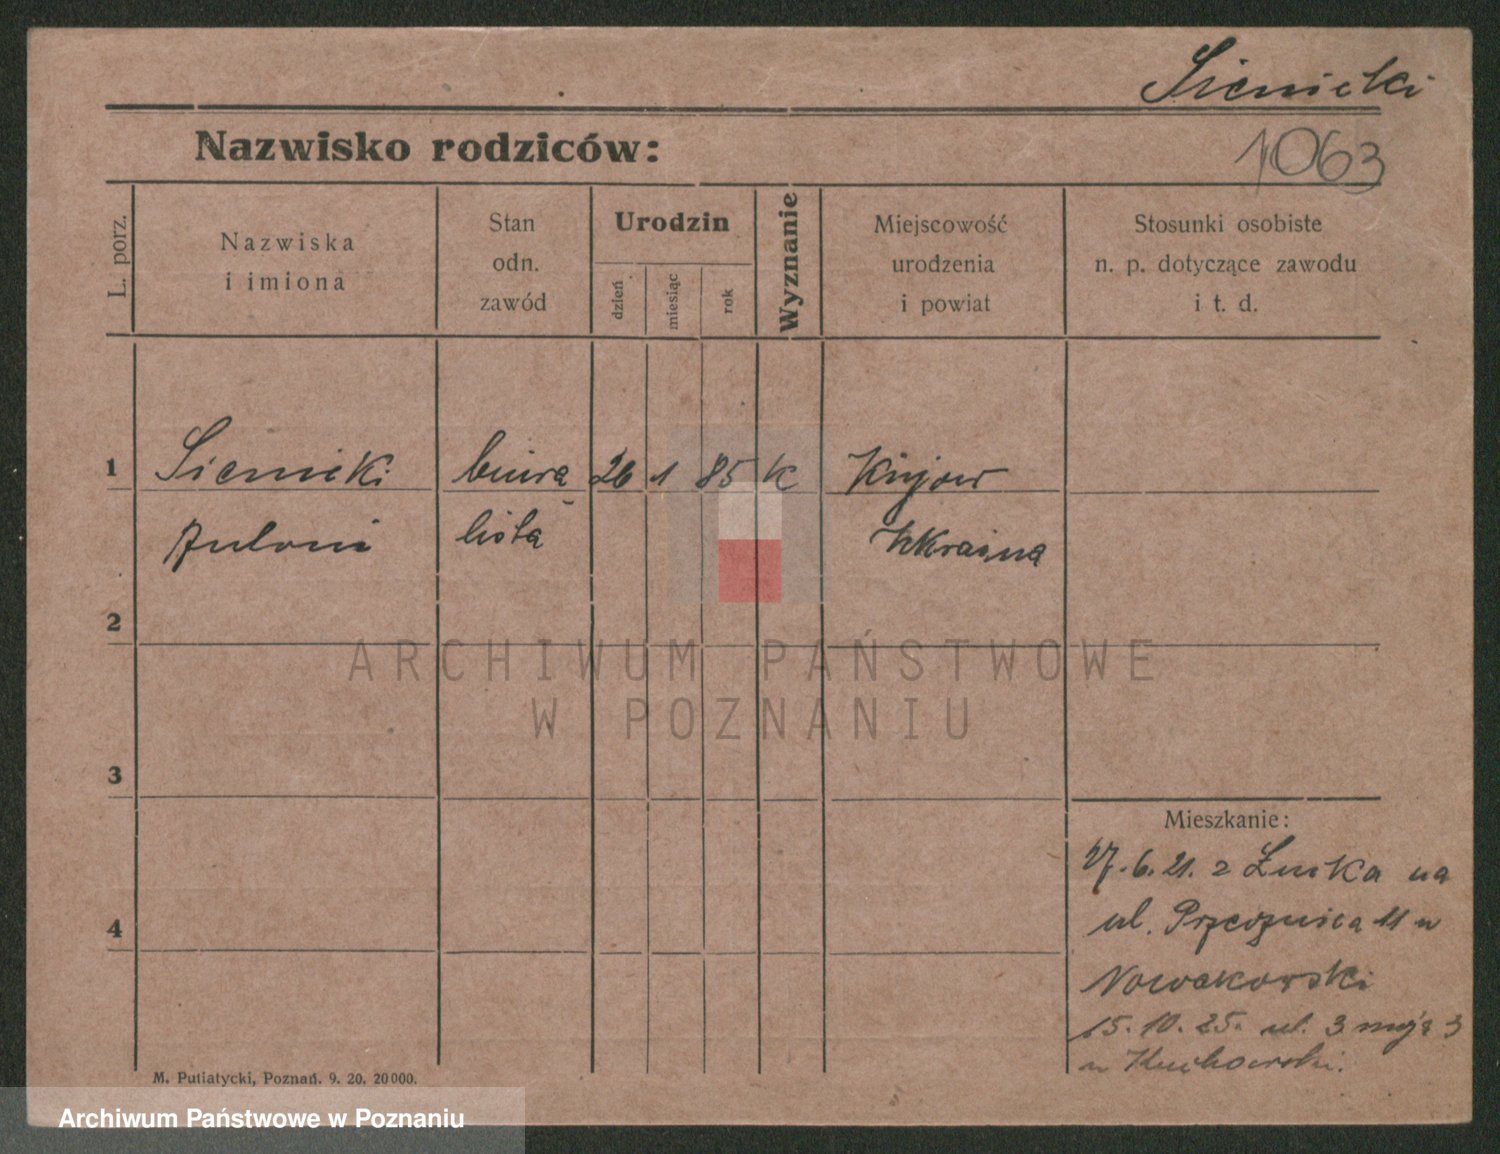 Sienicki
1063
Nazwisko rodziców:
L. porz.
Nazwiska
i imiona
Stan
odn.
zawód
Urodzin
dzień
miesiąc
rok
Wyznanie
Miejscowość
urodzenia
i powiat
Stosunki osobiste
n. p. dotyczące zawodu
i t. d.
1 Sienicki biura 26 1 85 k Kijow
Antoni lista Ukraina
2
ARCHIWUM PAŃSTWOWE
W POZNANIU
3
Mieszkanie:
27.6.21. z Łucka na
ul. Przecznica 11 u
4
Nowakowski
15.10.25. ul. 3 maja 3
u
M. Putiatycki, Poznań. 9. 20. 20000.
Archiwum Państwowe w Poznaniu